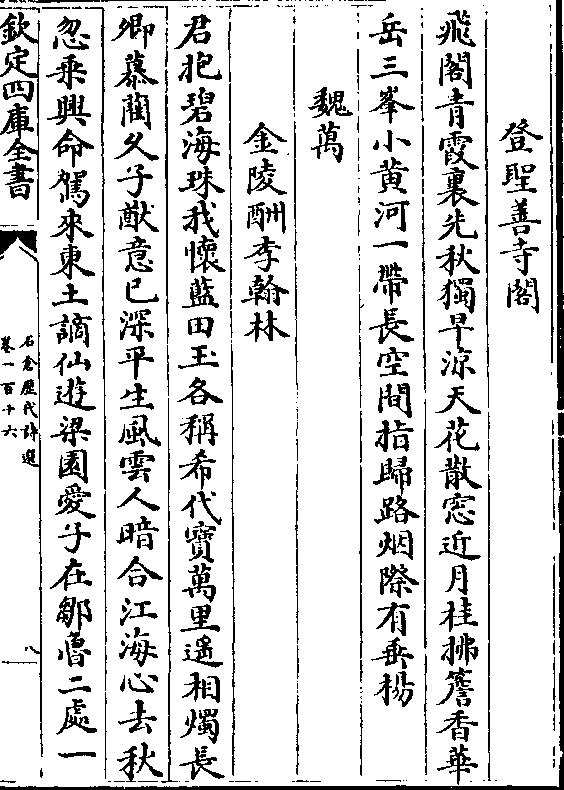 登聖善寺閣
飛閣青霞裏先秋獨早涼天花散窓近月桂拂簷香華
岳三峯小黄河一帶長空間指歸路烟際有垂楊
魏萬
金陵酬李翰林
君抱碧海珠我懷藍田玉各稱希代寶萬里遙相燭長
卿慕藺久子猷意已深平生風雲人暗合江海心去秋
忽乘興命駕來東土謫仙遊梁園愛子在鄒魯二處一
欽定四庫全書
石倉歷代詩選
卷一百十六
八